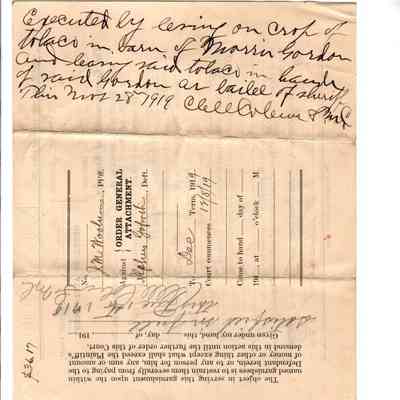 Executed by levying on crop of
tobaco in barn of Morris Gordon
and leaving said tobaco in hands
of said Gordon as bailee of sheriff
This Nov 28th 1919
No.
Pltff.
Against
ORDER GENERAL
ATTACHMENT.
Deft.
To Dec Term, 1919
Court commences 12/8/19
Came to hand day of
190 at o'clock M
$36.17
satisfied in full
1919
Given under my hand, this day of 191
demand on this action until the further order of this Court.
of money or other thing except what shall exceed the Plaintiff's
Defendant herein, or to any person for him, any sum or amount
named garnishees is to restrain them severally from paying to the
The object in serving this garnishment upon the within